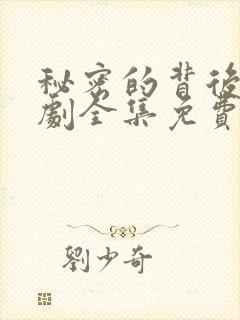 秘密的背後
劇全集免費
劉少奇